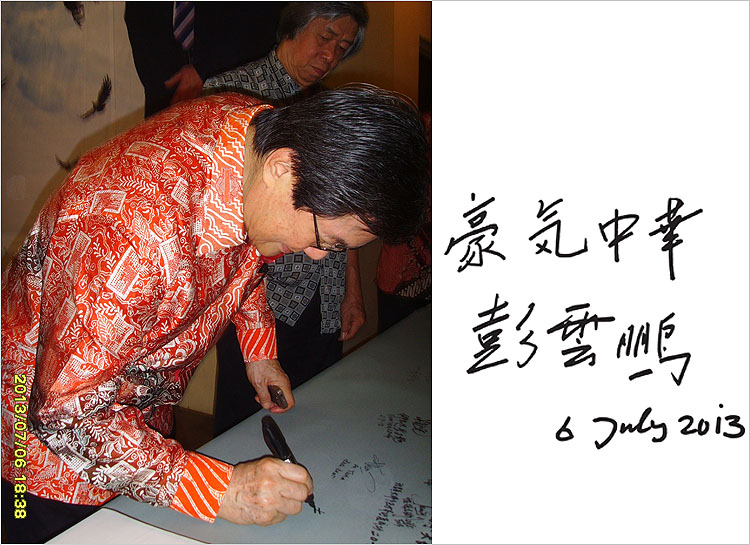 2013/07/06 18:38
豪气中華
彭雲鵬
6 July 2013